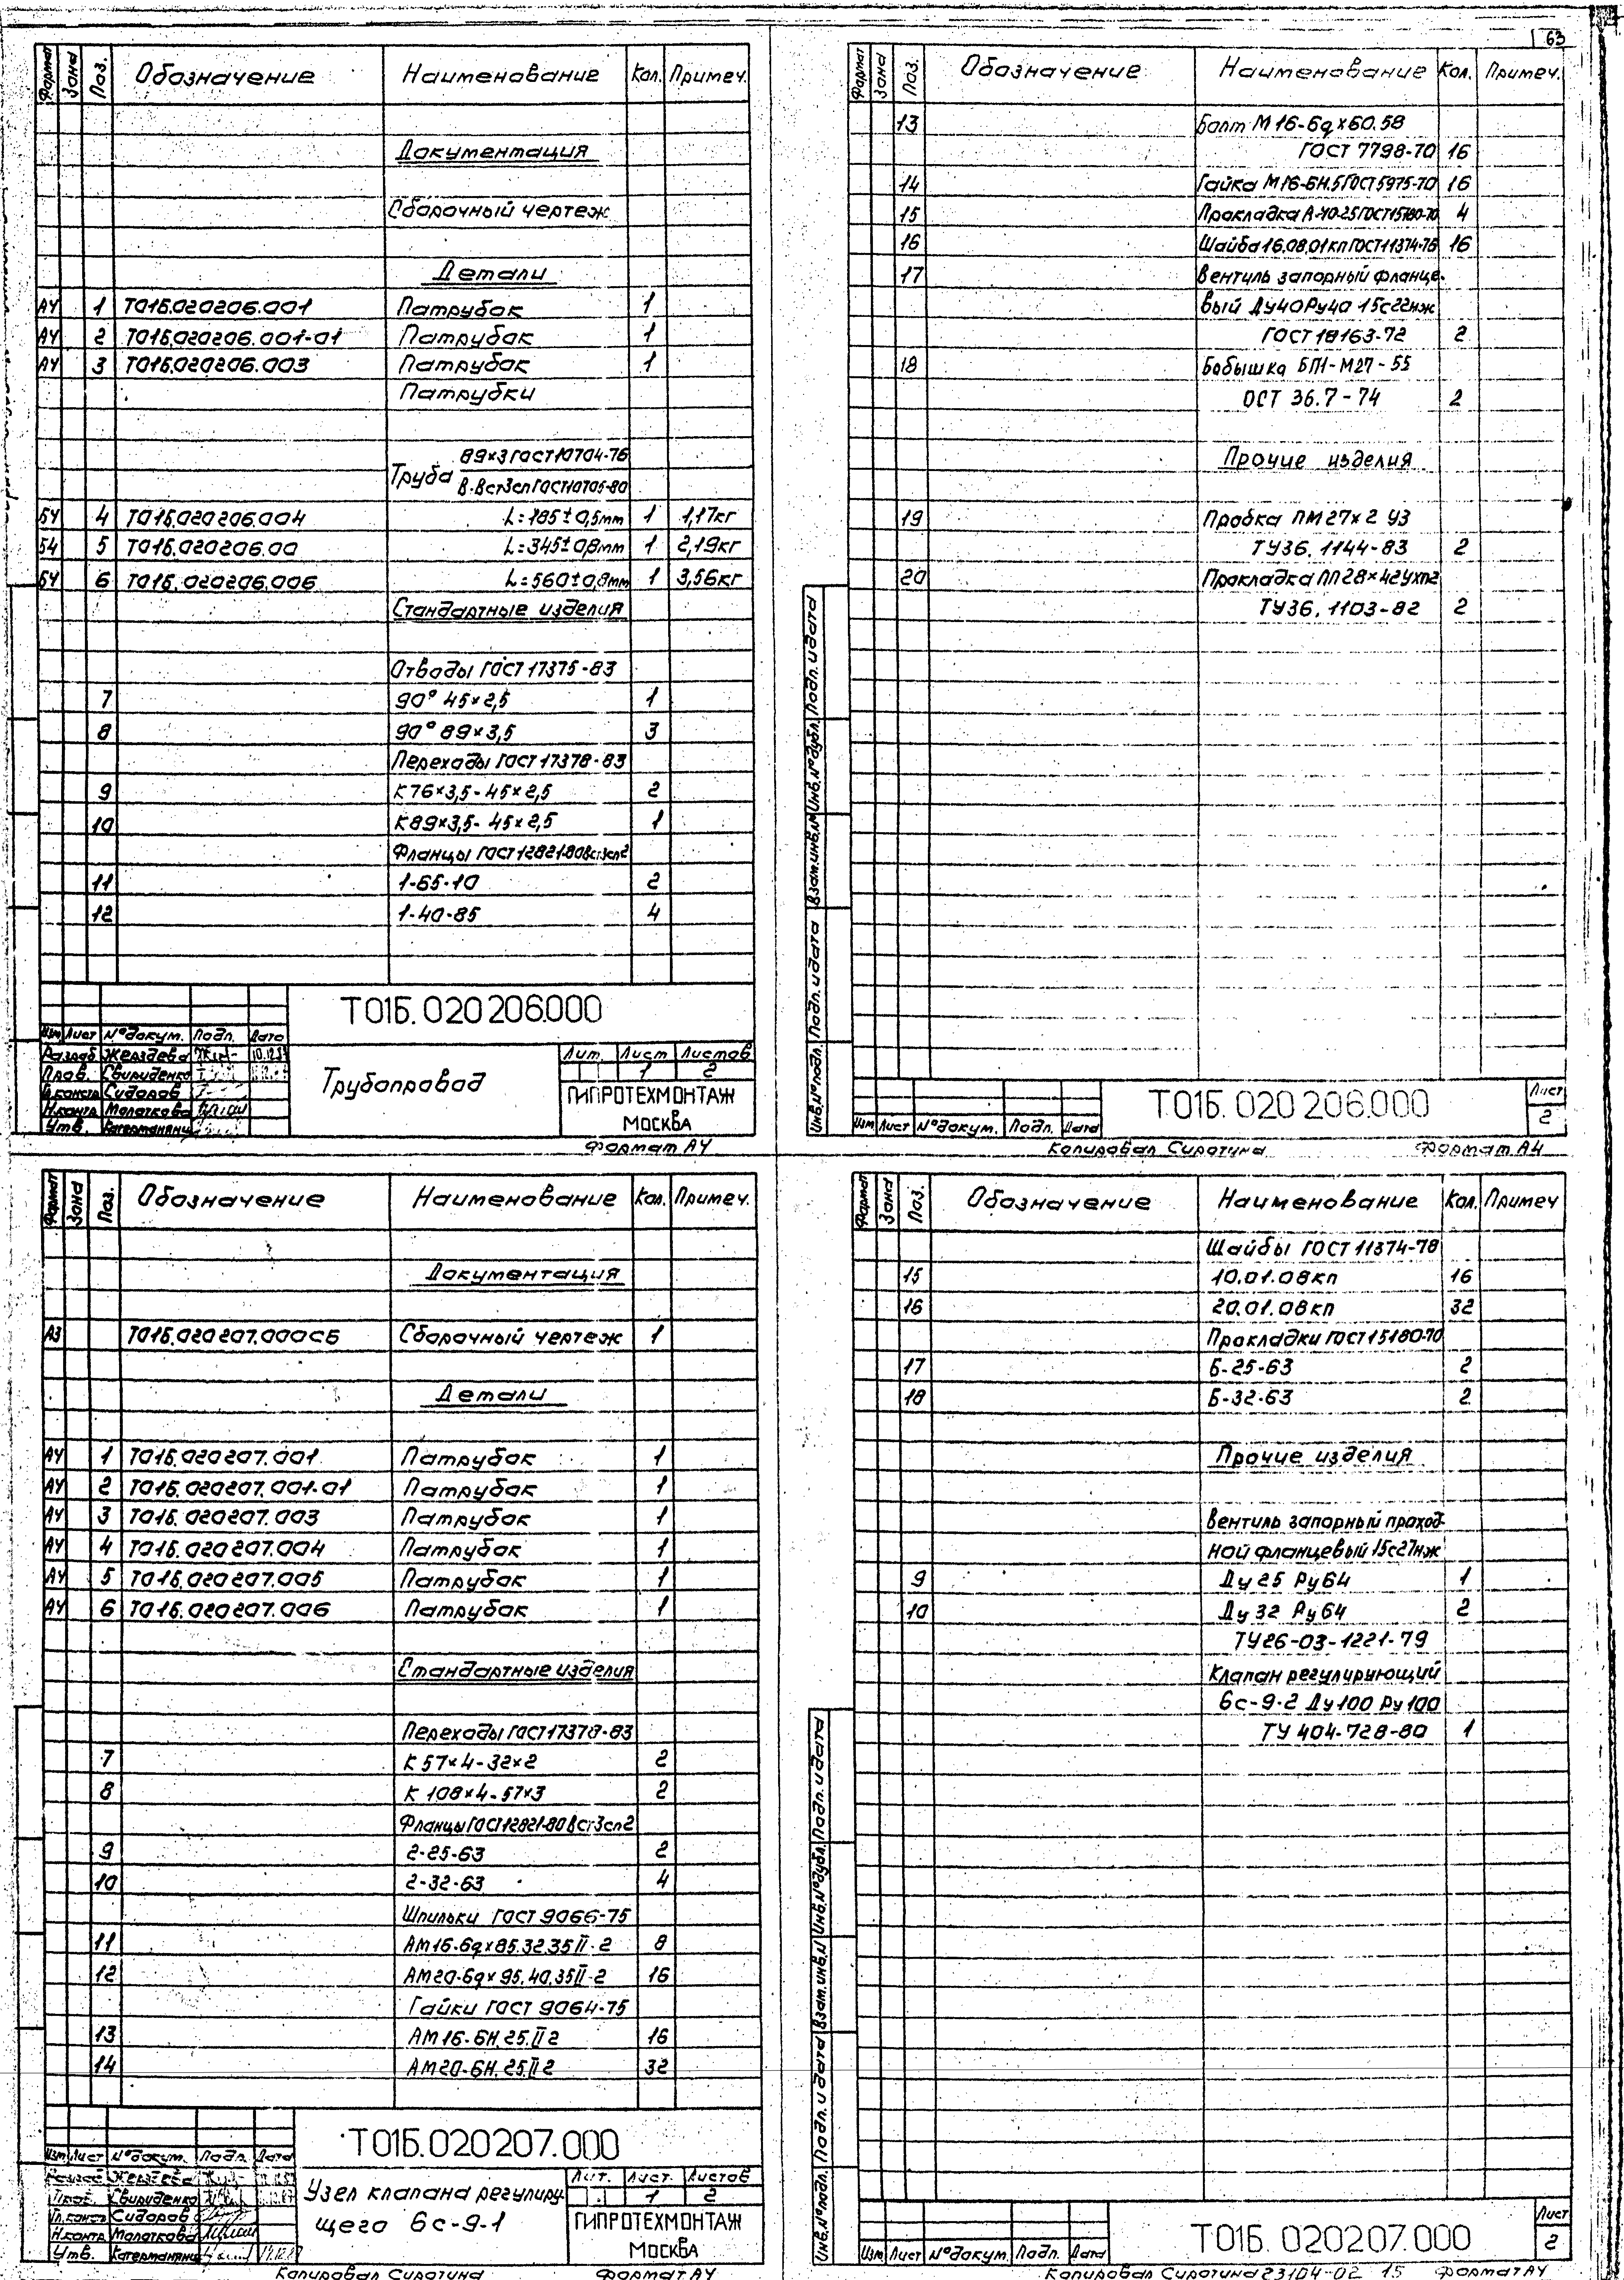 63
Формат Зона Поз. Обозначение Наименование Кол. Примеч.
Документация
Сборочный чертеж
Детали
А4 1 Т01Б.020206.001 Патрубок 1
А4 2 Т01Б.020206.001-01 Патрубок 1
А4 3 Т01Б.020206.003 Патрубок 1
Патрубки
Труба 89×3 ГОСТ 10704-76
В-Вст3сп ГОСТ 10705-80
БЧ 4 Т01Б.020206.004 L=185±0,5мм 1 1,17кг
БЧ 5 Т01Б.020206.00 L=345±0,8мм 1 2,19кг
БЧ 6 Т01Б.020206.006 L=560±0,8мм 1 3,56кг
Стандартные изделия
Отводы ГОСТ 17375-83
7 90° 45×2,5 1
8 90° 89×3,5 3
Переходы ГОСТ 17378-83
9 К76×3,5-45×2,5 2
10 К89×3,5-45×2,5 1
Фланцы ГОСТ 12821-80 Вст3сп2
11 1-65-10 2
12 1-40-25 4
Т01Б.020206.000
Изм Лист №докум. Подп. Дата
Разраб Жерздева
Пров. Свириденко
Гл.констр Сидоров
Н.контр Молоткова
Утв.
Трубопровод
Лит. Лист Листов
1 2
ГИПРОТЕХМОНТАЖ
МОСКВА
Формат А4
Формат Зона Поз. Обозначение Наименование Кол. Примеч.
13 Болт М16-6g×60.58
ГОСТ 7798-70 16
14 Гайка М16-6Н.5 ГОСТ 5975-70 16
15 Прокладка А-40-25 ГОСТ 15180-70 4
16 Шайба 16.08.01кп ГОСТ 11374-78 16
17 Вентиль запорный фланце-
вый Ду40 Ру40 15с22нж
ГОСТ 18163-72 2
18 Бобышка БП1-М27-55
ОСТ 36.7-74 2
Прочие изделия
19 Пробка ПМ27×2 У3
ТУ36.1144-83 2
20 Прокладка ПП28×42
ТУ36.1103-82 2
Инв.№подл. Подп. и дата Взам.инв.№ Инв.№дубл. Подп. и дата
Изм Лист №докум. Подп. Дата
Т01Б.020206.000
Лист
2
Копировал Сиротина Формат А4
Формат Зона Поз. Обозначение Наименование Кол. Примеч.
Документация
А3 Т01Б.020207.000СБ Сборочный чертеж 1
Детали
А4 1 Т01Б.020207.001 Патрубок 1
А4 2 Т01Б.020207.001-01 Патрубок 1
А4 3 Т01Б.020207.003 Патрубок 1
А4 4 Т01Б.020207.004 Патрубок 1
А4 5 Т01Б.020207.005 Патрубок 1
А4 6 Т01Б.020207.006 Патрубок 1
Стандартные изделия
Переходы ГОСТ 17378-83
7 К 57×4-32×2 2
8 К 108×4-57×3 2
Фланцы ГОСТ 12821-80 Вст3сп2
9 2-25-63 2
10 2-32-63 4
Шпильки ГОСТ 9066-75
11 АМ16-6g×85.32.35 II-2 8
12 АМ20-6g×95.40.35 II-2 16
Гайки ГОСТ 9064-75
13 АМ16-6Н.25.II 2 16
14 АМ20-6Н.25.II 2 32
Т01Б.020207.000
Изм Лист №докум. Подп. Дата
Разраб Жерздева
Пров. Свириденко
Гл.констр Сидоров
Н.контр Молоткова
Утв.
Узел клапана регулиру-
щего 6с-9-1
Лит. Лист. Листов
1 2
ГИПРОТЕХМОНТАЖ
МОСКВА
Копировал Сиротина Формат А4
Формат Зона Поз. Обозначение Наименование Кол. Примеч
Шайбы ГОСТ 11374-78
15 10.01.08кп 16
16 20.01.08кп 32
Прокладки ГОСТ 15180-70
17 Б-25-63 2
18 Б-32-63 2
Прочие изделия
Вентиль запорный проход-
ной фланцевый 15с27нж
9 Ду 25 Ру64 1
10 Ду 32 Ру64 2
ТУ26-03-1221-79
Клапан регулирующий
6с-9-2 Ду100 Ру100
ТУ 404-728-80 1
Инв.№подл. Подп. и дата Взам.инв.№ Инв.№дубл. Подп. и дата
Изм Лист №докум. Подп. Дата
Т01Б.020207.000
Лист
2
Копировал Сиротина 23104-02 15 Формат А4